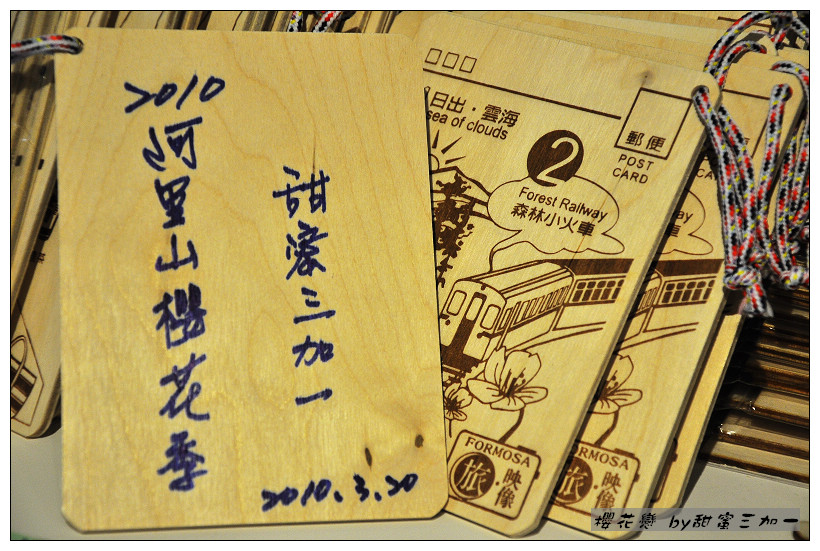 2010
阿里山櫻花季
甜蜜三加一
2010.3.20
日出・雲海
sea of clouds
郵便
POST
CARD
2
Forest Railway
森林小火車
FORMOSA
旅・映像
FORMOSA
旅・映像
櫻花戀 by甜蜜三加一